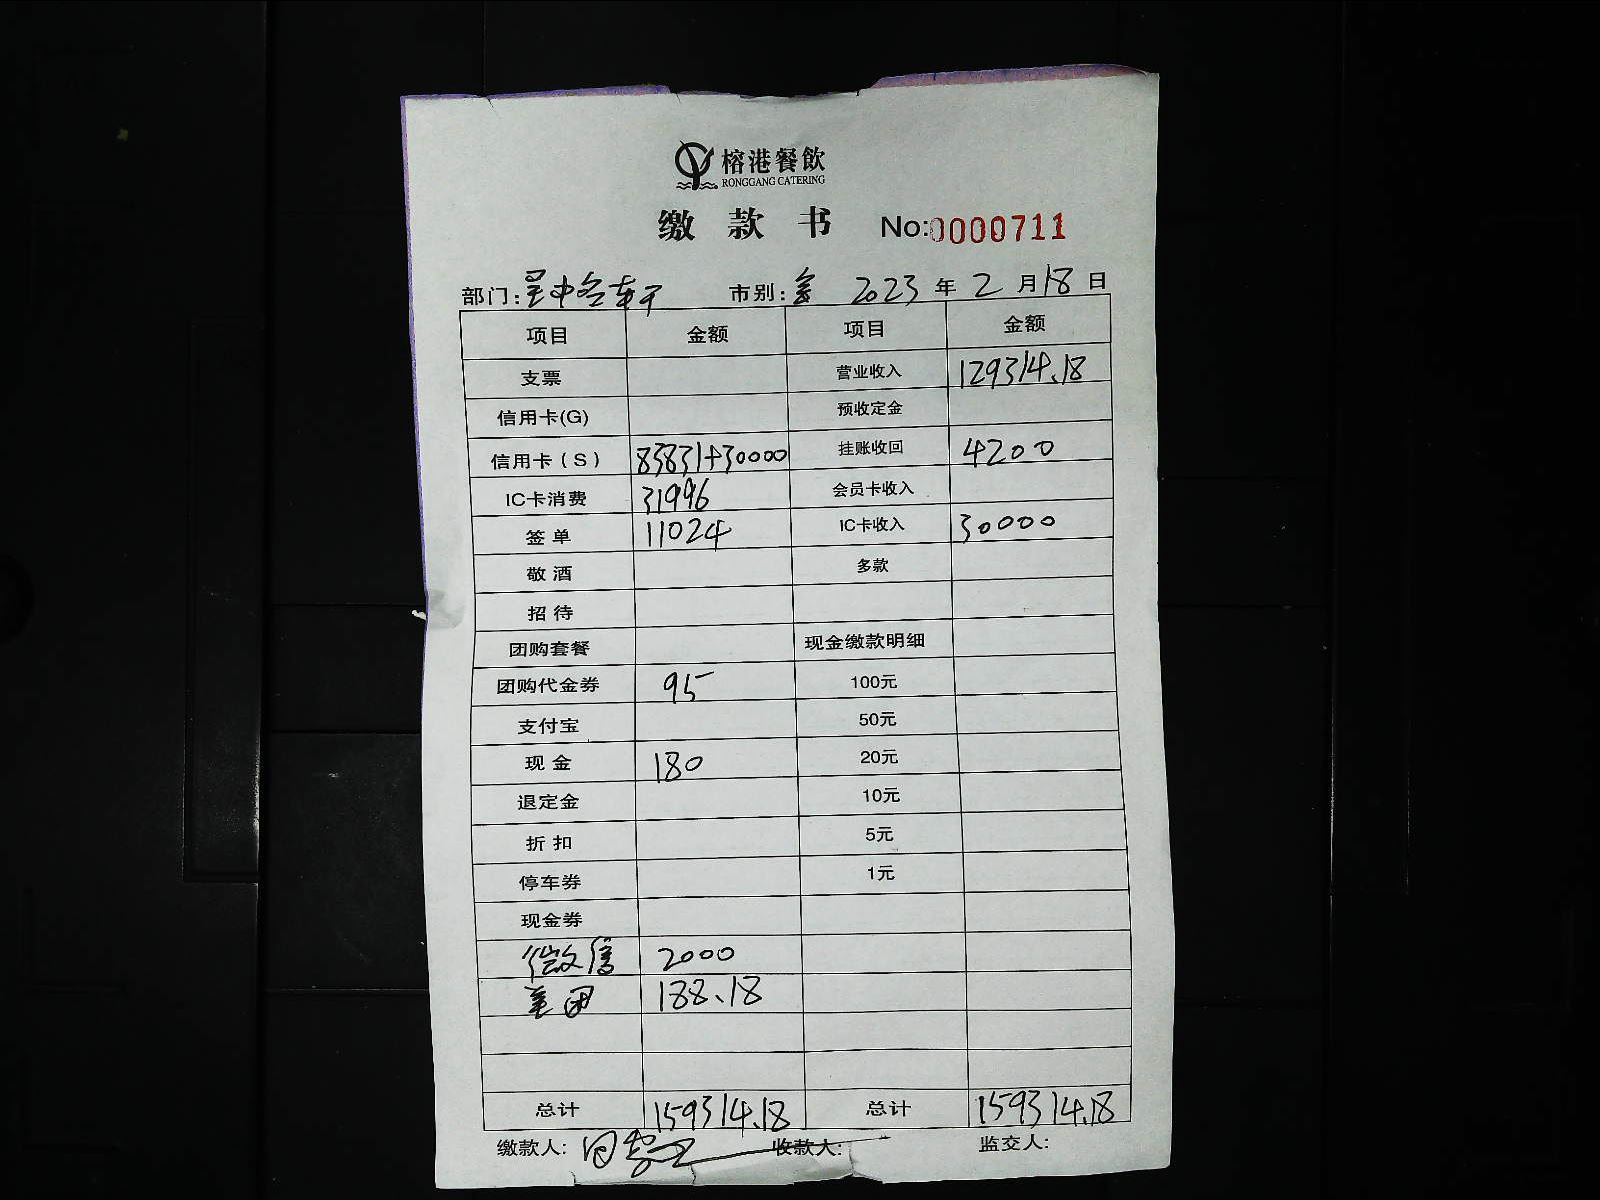 榕港餐飲
RONGGANG CATERING
缴款书 No:0000711
部门: 市别: 2023 年 2 月 18 日
项目 金额 项目 金额
支票 营业收入 129314.18
信用卡(G) 预收定金
信用卡(S) 83831+30000 挂账收回 4200
IC卡消费 31996 会员卡收入
签单 11024 IC卡收入 30000
敬酒 多款
招待
团购套餐 现金缴款明细
团购代金券 95 100元
支付宝 50元
现金 180 20元
退定金 10元
折扣 5元
停车券 1元
现金券
微信 2000
美团 188.18
总计 159314.18 总计 159314.18
缴款人: 收款人: 监交人: